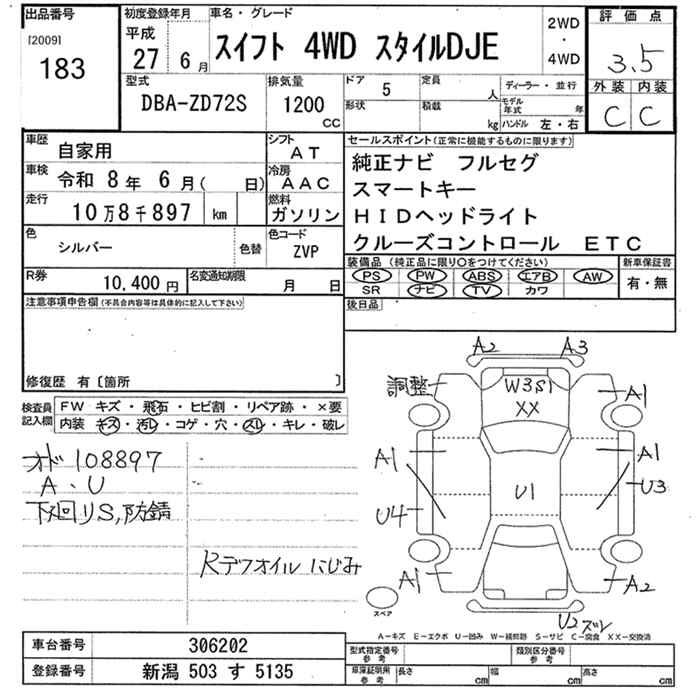 出品番号 初度登録年月 車名・グレード 評価点
[2009] 平成 2WD
183 27 6月 スイフト 4WD スタイルDJE ・ 3.5
4WD
型式 排気量 ドア 5 定員 人 ディーラー・並行 外装 内装
DBA-ZD72S 1200 CC 形状 積載 kg モデル年式 年 C C
ハンドル 左・右
車歴 自家用 シフト AT セールスポイント(正常に機能するものに限ります)
車検 令和 8年 6月( 日) 冷房 AAC 純正ナビ フルセグ
走行 10万8千897 km 燃料 ガソリン スマートキー
HIDヘッドライト
色 シルバー 色替 色コード ZVP クルーズコントロール ETC
R券 10,400円 名変通知期限 月 日 装備品 (純正品に限り○をつけてください) 新車保証書
PS PW ABS エアB AW 有・無
SR ナビ TV カワ
注意事項申告欄(不具合内容等は具体的に記入して下さい) 後日品
修復歴 有〔箇所 〕
検査員記入欄 FW キズ・飛石・ヒビ割・リペア跡・×要
内装 キズ・汚レ・コゲ・穴・スレ・キレ・破レ
A2 A3
調整 W3S1 A1
XX
オド108897 A1 A1
A・U U1 U3
下廻りS,防錆 U4
Rデフオイルにじみ A1 A2
スペア U2ズレ
A-キズ E-エクボ U-凹み W-補修跡 S-サビ C-腐食 XX-交換済
車台番号 306202 型式指定番号 参考 類別区分番号 参考
登録番号 新潟 503 す 5135 車庫証明用 参考 長さ cm 幅 cm 高さ cm